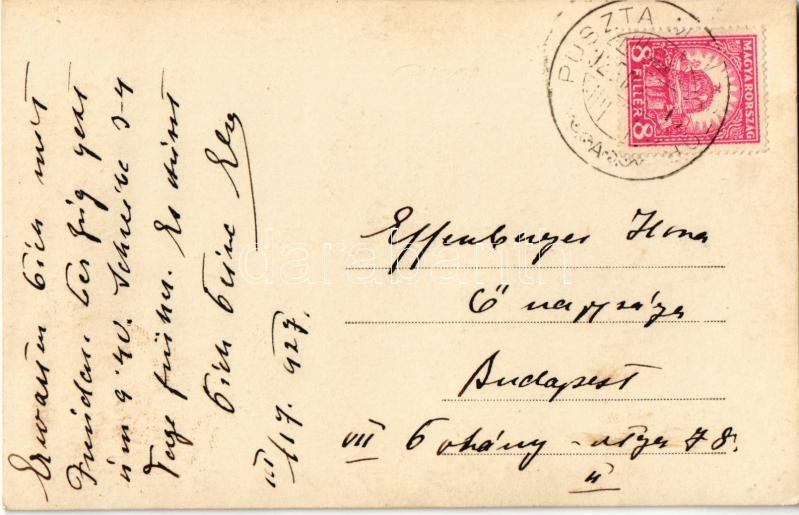 Erwarten Dich mit
Freuden. Der Zug geht
um 9.40. Schreibe 3-4
Tage früher. Es küsst
Dich Deine
III/17. 927.
PUSZTA
MAGYARORSZÁG
8 FILLÉR 8
Effenberger Ilona
Ő nagysága
Budapest
VII Dohány-utca 78.
II
darabanth